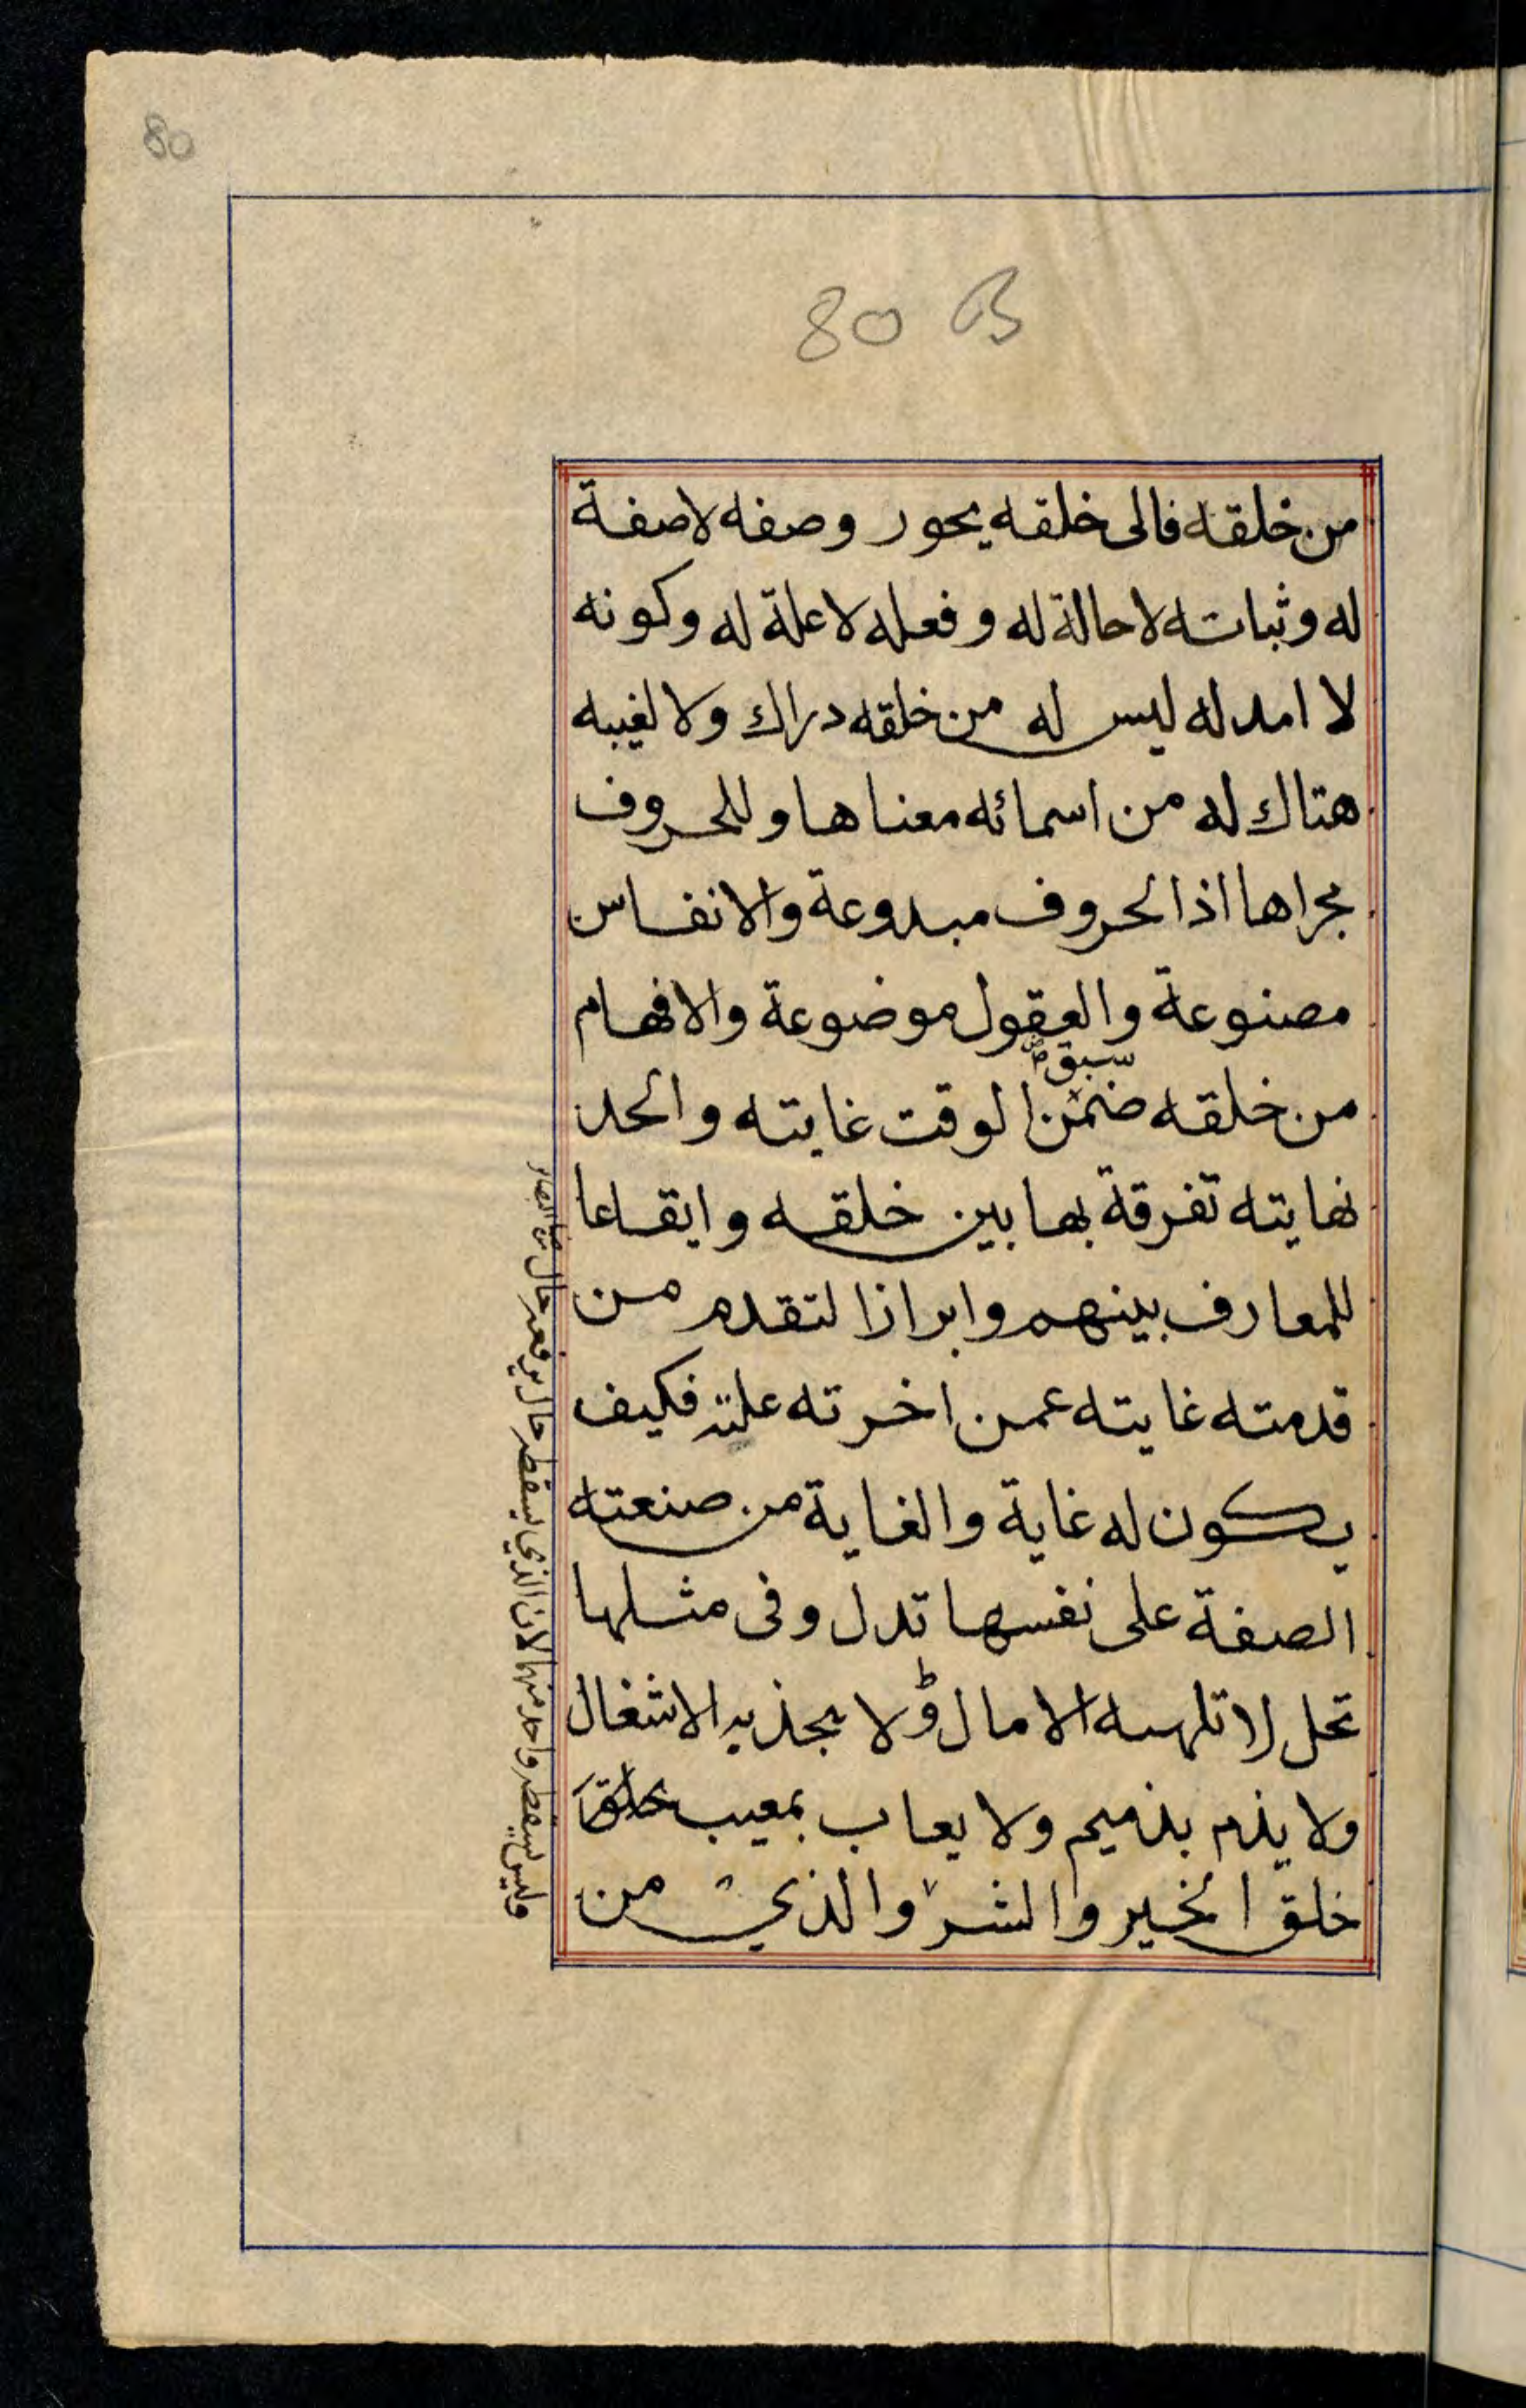 80
80 B
من خلقه فالى خلقه يحور وصفه لا صفة
له وثباته لا حالة له وفعله لا علة له وكونه
لا امد له ليس له من خلقه دراك ولا لغيبه
هتاك له من اسمائه معناها وللحروف
مجراها اذ الحروف مبدوعة والانفاس
مصنوعة والعقول موضوعة والافهام
سبق
من خلقه ضمن الوقت غايته والحد
نهايته تفرقة بها بين خلقه وايقاعا
للمعارف بينهم وابرازا لتقدم من
قدمته غايته عمن اخرته علته فكيف
يكون له غاية والغاية من صنعته
الصفة على نفسها تدل وفى مثلها
تحل لا تلهيه الامال ولا يجذبه الاشغال
ولا يذم بذميم ولا يعاب بمعيب خلق
خلق الخير والشر والذي من
وليس يسقط واحد منها لان الذي يسقط حال يرفعه حال